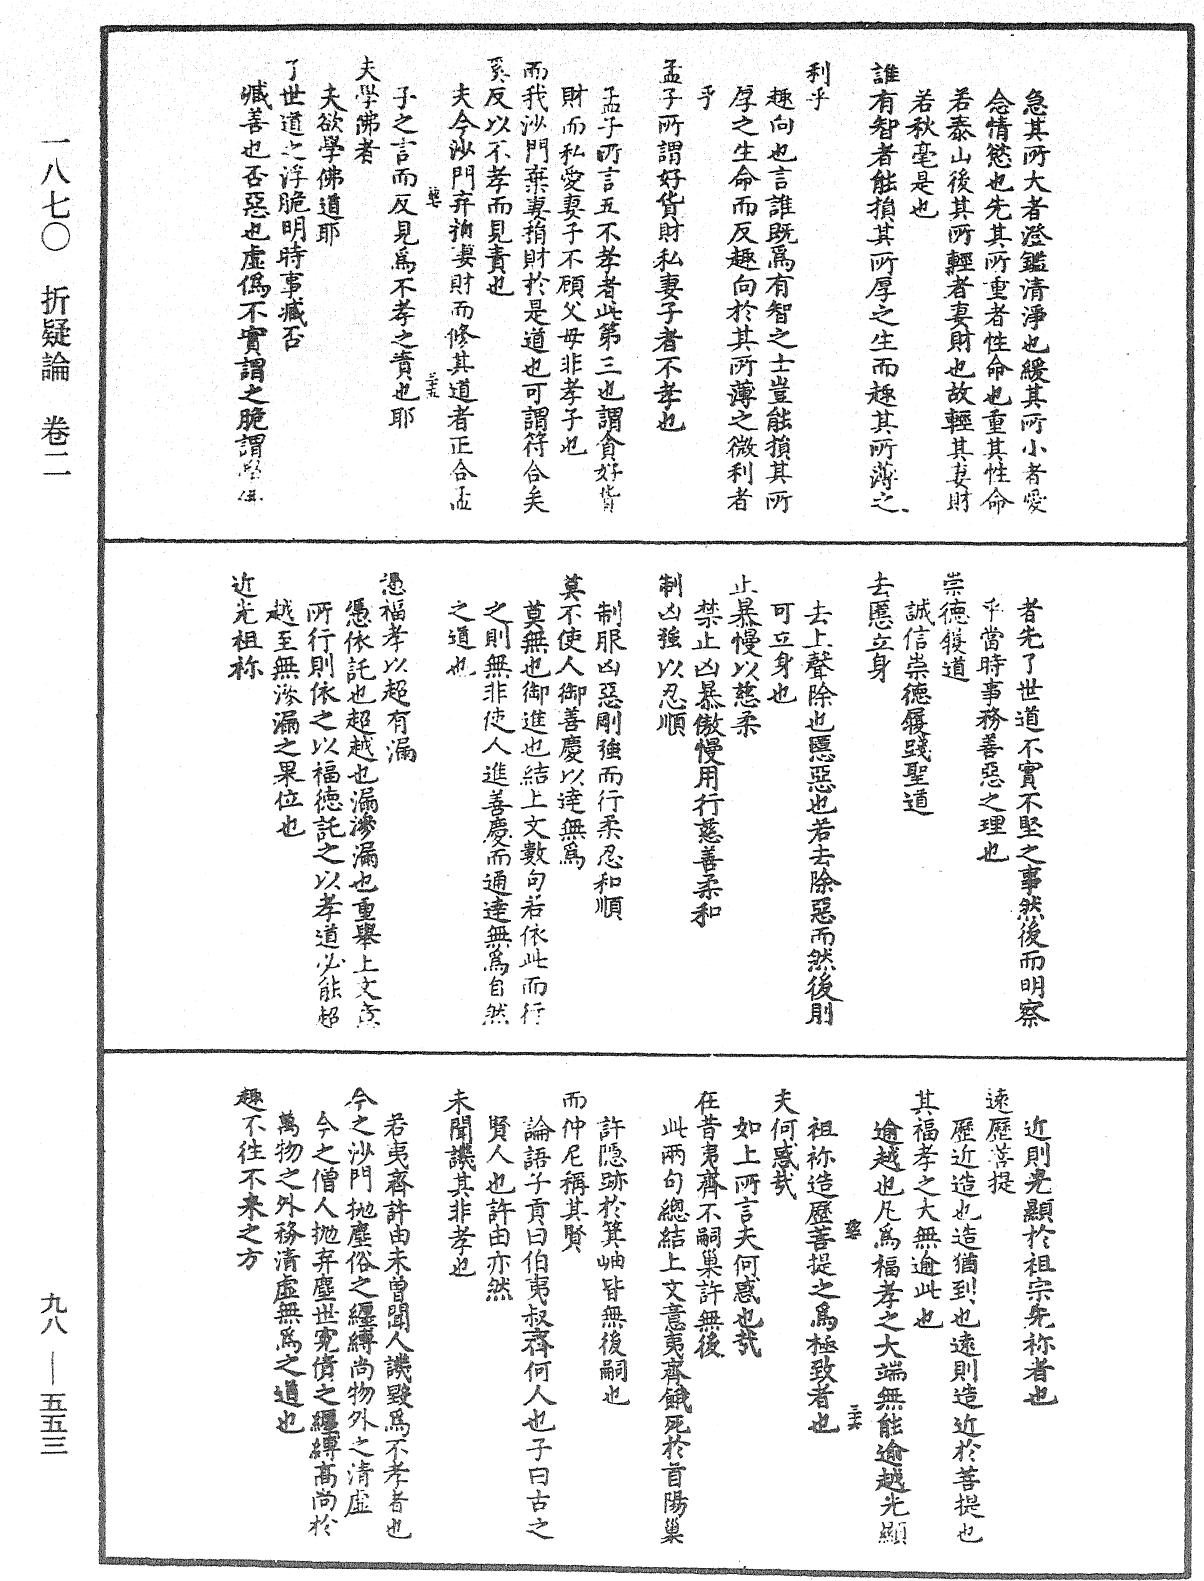 急其所大者澄鑑清淨也緩其所小者愛
念情慾也先其所重者性命也重其性命
若泰山後其所輕者妻財也故輕其妻財
若秋毫是也
誰有智者能損其所厚之生而趣其所薄之
利乎
趣向也言誰既爲有智之士豈能損其所
厚之生命而反趣向於其所薄之微利者
乎
孟子所謂好貨財私妻子者不孝也
孟子所言五不孝者此第三也謂貪好貨
財而私愛妻子不顧父母非孝子也
而我沙門棄妻捐財於是道也可謂符合矣
奚反以不孝而見責也
夫今沙門弃捐妻財而修其道者正合孟
子之言而反見爲不孝之責也耶
夫學佛者
夫欲學佛道耶
了世道之浮脆明時事臧否
臧善也否惡也虛僞不實謂之脆謂學佛
者先了世道不實不堅之事然後而明察
乎當時事務善惡之理也
崇德履道
誠信崇德履踐聖道
去慝立身
去上聲除也慝惡也若去除惡而然後則
可立身也
止暴慢以慈柔
禁止凶暴傲慢用行慈善柔和
制凶強以忍順
制服凶惡剛強而行柔忍和順
莫不使人御善慶以達無爲
莫無也御進也結上文數句若依此而行
之則無非使人進善慶而通達無爲自然
之道也
憑福孝以超有漏
憑依託也超越也漏滲漏也重舉上文意
所行則依之以福德託之以孝道必能超
越至無滲漏之果位也
近光祖祢
近則光顯於祖宗先祢者也
遠歷菩提
歷近造也造猶到也遠則造近於菩提也
其福孝之大無逾此也
逾越也凡爲福孝之大端無能逾越光顯
祖祢造歷菩提之爲極致者也
夫何惑哉
如上所言夫何惑也哉
在昔夷齊不嗣巢許無後
此兩句總結上文意夷齊餓死於首陽巢
許隱跡於箕岫皆無後嗣也
而仲尼稱其賢
論語子貢曰伯夷叔齊何人也子曰古之
賢人也許由亦然
未聞譏其非孝也
若夷齊許由未曾聞人譏毀爲不孝者也
今之沙門抛塵俗之纏縛尚物外之清虛
今之僧人抛弃塵世寃債之纏縛高尚於
萬物之外務清虛無爲之道也
趣不往不來之方
三十五
三十六
一八七〇 折疑論 卷二
九八—五五三